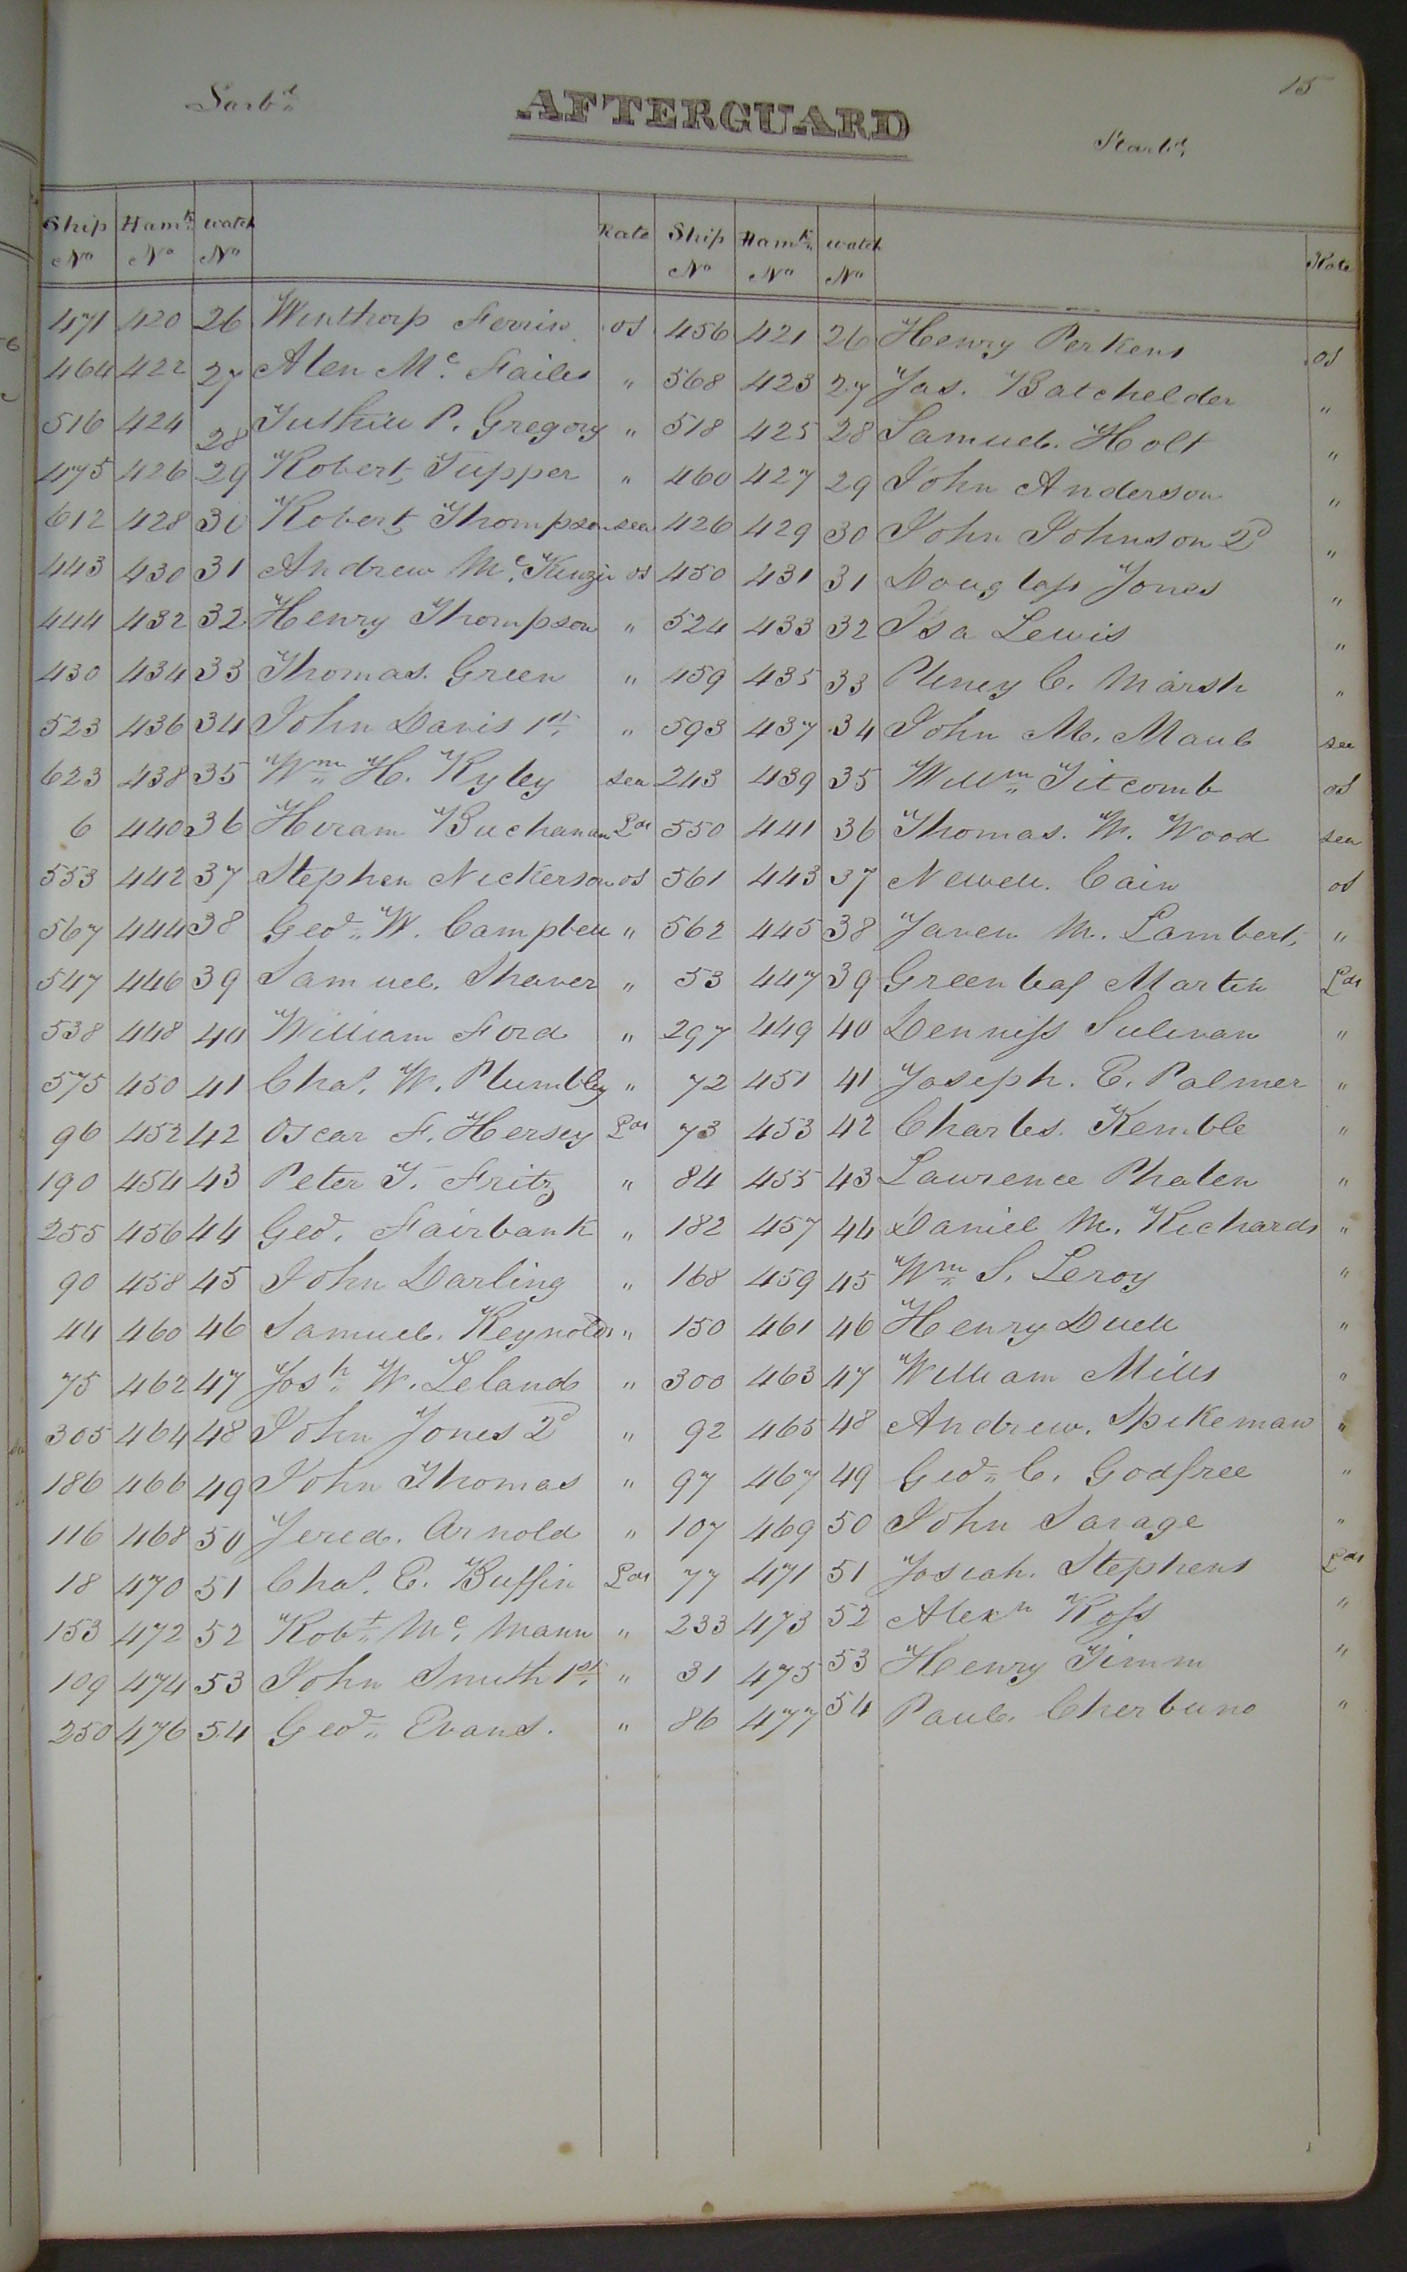 15
Larbd AFTERGUARD Starbd
Ship No Hamk No watch No Rate Ship No Hamk No watch No Rate
471 420 26 Winthorp Ferrin os 456 421 26 Henry Perkens os
464 422 27 Alen Mc Failes " 568 423 27 Jas. Batchelder "
516 424 28 Tuthill P. Gregory " 518 425 28 Samuel Holt "
475 426 29 Robert Tupper " 460 427 29 John Anderson "
612 428 30 Robert Thompson sea 426 429 30 John Johnson 2d "
443 430 31 Andrew Mc Kenzie os 450 431 31 Douglass Jones "
444 432 32 Henry Thompson " 524 433 32 Isa Lewis "
430 434 33 Thomas Green " 459 435 33 Pliney C. Marsh "
523 436 34 John Davis 1st " 593 437 34 John M. Maul sea
623 438 35 Wm H. Ryley sea 243 439 35 Willm Titcomb os
6 440 36 Hiram Buchanan Lds 550 441 36 Thomas. W. Wood sea
553 442 37 Stephen Nickerson os 561 443 37 Newell Cain os
567 444 38 Geo. W. Campbell " 562 445 38 M. Lambert "
547 446 39 Samuel Shaver " 53 447 39 Greenleaf Martin Lds
538 448 40 William Ford " 297 449 40 Denniss Sulivan "
575 450 41 Chas. W. Plumbley " 72 451 41 Joseph. E. Palmer "
96 452 42 Oscar F. Hersey Lds 73 453 42 Charles Kemble "
190 454 43 Peter T. Fritz " 84 455 43 Lawrence Phalen "
255 456 44 Geo. Fairbank " 182 457 44 Daniel M. Richards "
90 458 45 John Darling " 168 459 45 Wm S. Leroy "
44 460 46 Samuel Reynolds " 150 461 46 Henry Duell "
75 462 47 Josh W. Leland " 300 463 47 William Mills "
305 464 48 John Jones 2d " 92 465 48 Andrew. Spikeman "
186 466 49 John Thomas " 97 467 49 Geo. C. Godfree "
116 468 50 Jered. Arnold " 107 469 50 John Savage "
18 470 51 Chas. E. Buffin Lds 77 471 51 Josiah. Stephens Lds
153 472 52 Robt Mc Mann " 233 473 52 Alexn Ross "
109 474 53 John Smith 1st " 31 475 53 Henry Timm "
250 476 54 Geo. Evans. " 86 477 54 Paul Cherbuno "